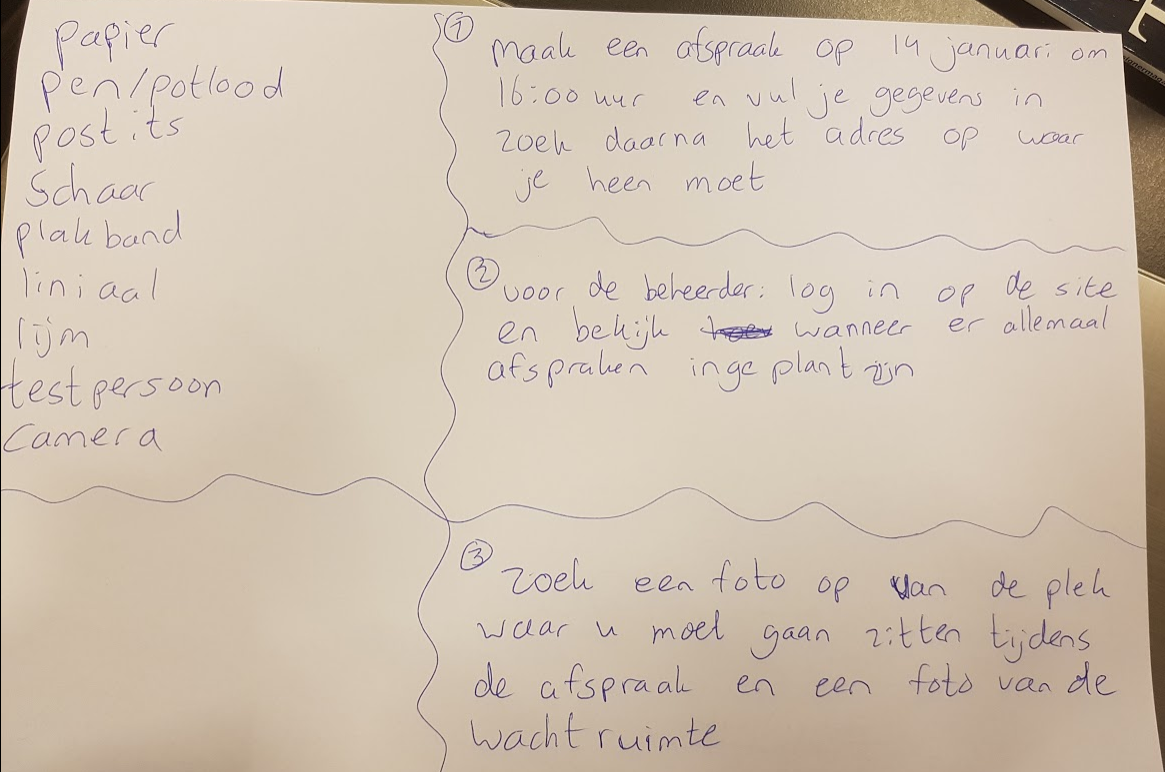 papier
pen/potlood
post its
Schaar
plakband
liniaal
lijm
testpersoon
Camera
① maak een afspraak op 14 januari om
16:00 uur en vul je gegevens in
zoek daarna het adres op waar
je heen moet
② voor de beheerder: log in op de site
en bekijk wanneer er allemaal
afspraken ingeplant zijn
③ zoek een foto op van de plek
waar u moet gaan zitten tijdens
de afspraak en een foto van de
wachtruimte